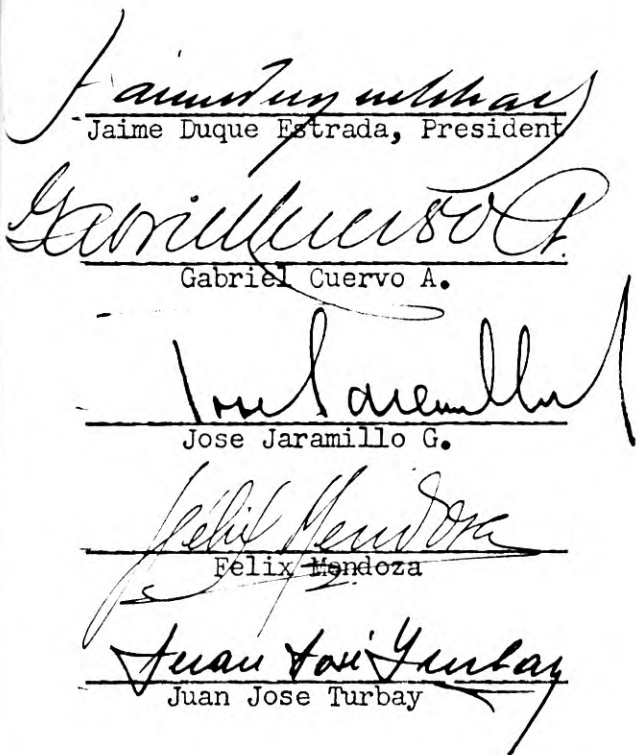 Jaime Duque Estrada
Jaime Duque Estrada, President
Gabriel Cuervo A.
Gabriel Cuervo A.
Jose Jaramillo
Jose Jaramillo G.
Félix Mendoza
Felix Mendoza
Juan José Turbay
Juan Jose Turbay